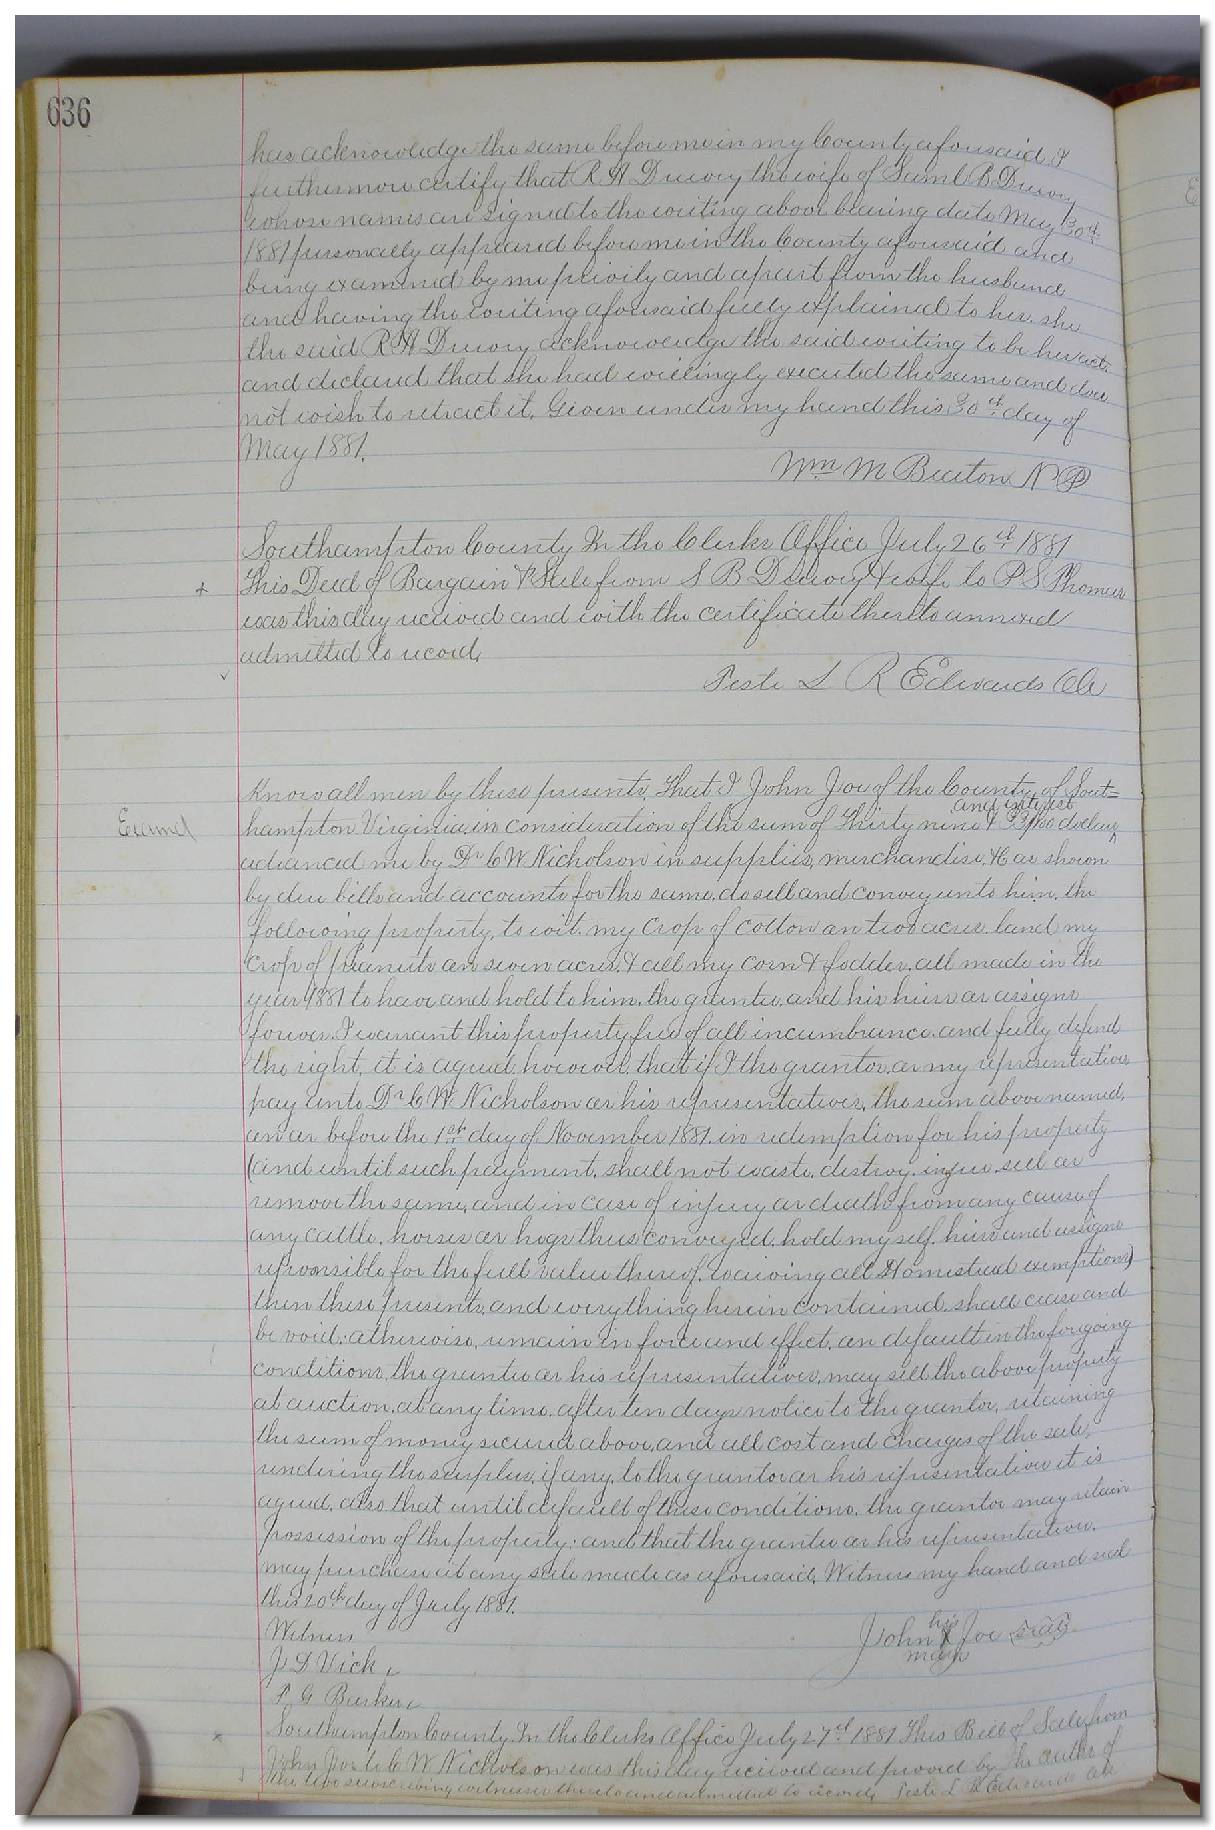 636
has acknowledge the same before me in my County aforesaid I
furthermore certify that R A Drewry the wife of Saml B Drewry
whose names are signed to the writing above bearing date May 30th
1881 personally appeared before me in the County aforesaid and
being examined by me privily and apart from the husband
and having the writing aforesaid fully explained to her, she
the said R A Drewry acknowledge the said writing to be her act
and declared that she had willingly executed the same and does
not wish to retract it. Given under my hand this 30th day of
May 1881.
Wm M N P
Southampton County In the Clerks Office July 26th 1881
+ This Deed of Bargain & Sale from S B Drewry & wife to P S Thomas
was this day received and with the certificate thereto annexed
admitted to record,
Teste L R Edwards Clk
Know all men by these presents, That I John Joe of the County of South=
and interest
Examd hampton Virginia in consideration of the sum of Thirty nine & 33/100 dollars
advanced me by Dr C W Nicholson in supplies, merchandise, &c as shown
by due bills and accounts for the same, do sell and convey unto him, the
following property, to wit, my crop of cotton on two acres land my
crop of peanuts on seven acres, & all my corn & fodder, all made in the
year 1881 to have and hold to him, the grantee, and his heirs or assigns
forever. I warrant this property free of all incumbrance, and fully defend
the right, it is agreed, however, that if I the grantor, or my representatives
pay unto Dr C W Nicholson or his representatives, the sum above named,
on or before the 1st day of November 1881, in redemption for his property
(and until such payment, shall not waste, destroy, injure, sell or
remove the same, and in case of injury or death from any cause of
any cattle, horses or hogs thus conveyed, hold myself, heirs and assigns
responsible for the full value thereof, waiving all Homestead exemptions)
then these presents, and everything herein contained, shall cease and
be void: otherwise, remain in force and effect, on default in the foregoing
conditions, the grantee or his representatives, may sell the above property
at auction, at any time, after ten days notice to the grantor, retaining
the sum of money secured above, and all cost and charges of the sale,
rendering the surplus, if any, to the grantor or his representative it is
agreed, also that until default of these conditions, the grantor may retain
possession of the property: and that the grantee or his representative,
may purchase at any sale made as aforesaid, Witness my hand and seal
this 20th day of July 1881.
Witness
his
John X Joe seal
mark
J D Vick,
P G Barker,
Southampton County, In the Clerks Office July 27th 1881 This Bill of Sale from
John Joe to C W Nicholson was this day received and proved by the oaths of
the two subscribing witnesses thereto and admitted to record, Teste L R Edwards Clk